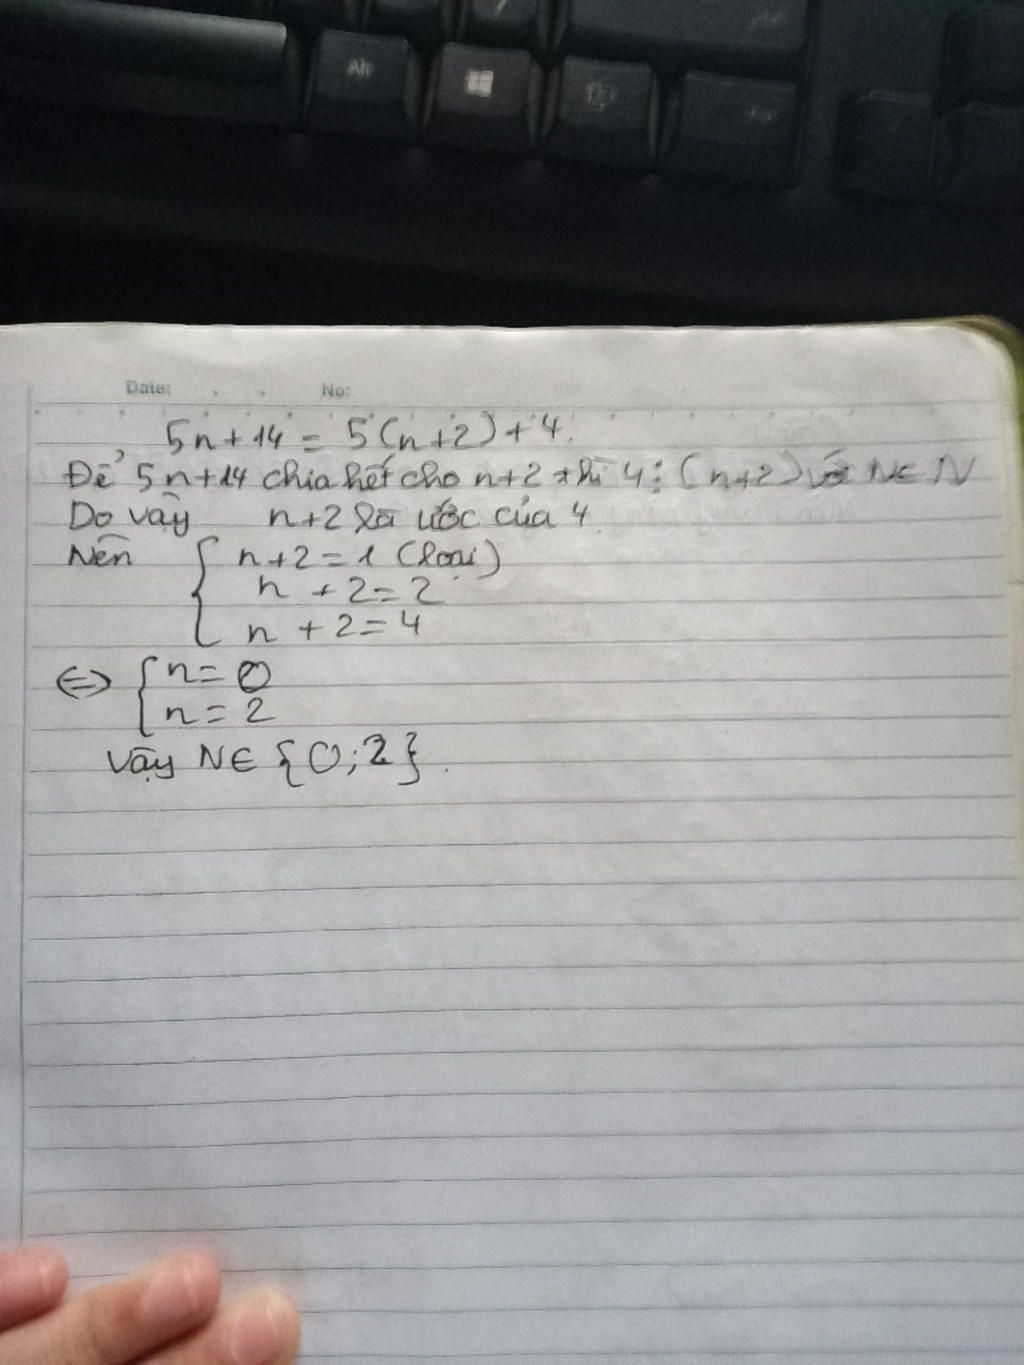 Alt
Date: No:
5n+14 = 5(n+2)+4.
Để 5n+14 chia hết cho n+2 thì 4⋮(n+2) với N∈N
Do vậy n+2 là ước của 4.
Nên { n+2=1 (loại)
n+2=2
n+2=4
⇔ { n=0
n=2
Vậy N∈{0;2}.